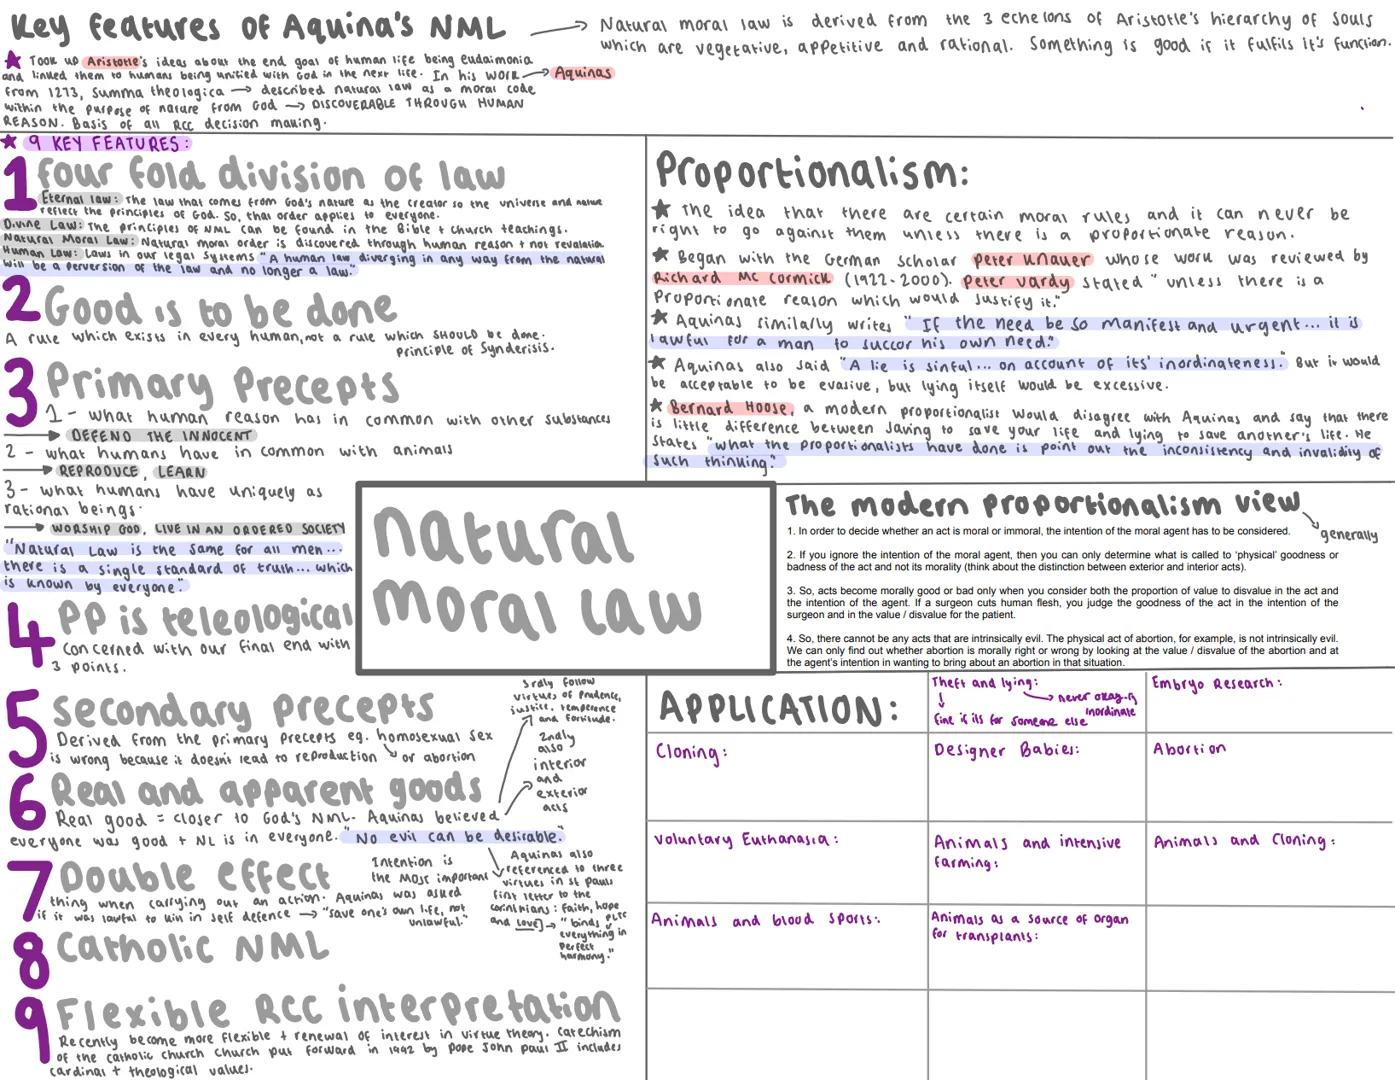 Key features of Aquina's NML
Natural moral law is derived from the 3 echelons of Aristotle's hierarchy of souls
which are vegetative, appetitive and rational. Something is good if it fulfils it's function.
★ Took up Aristotle's ideas about the end goal of human life being eudaimonia
and linked them to humans being unitied with God in the next life. In his work → Aquinas
from 1273, Summa theologica → described natural law as a moral code
within the purpose of nature from God → DISCOVERABLE THROUGH HUMAN
REASON. Basis of all RCC decision making.
★ 9 KEY FEATURES:
1 four fold division of law
Eternal law: The law that comes from God's nature as the creator so the universe and nature
reflect the principles of God. So, that order applies to everyone.
Divine Law: The principles of NML can be found in the Bible + church teachings.
Natural Moral Law: Natural moral order is discovered through human reason + not revelation
Human Law: Laws in our legal systems "A human law diverging in any way from the natural
will be a perversion of the law and no longer a law."
2 Good is to be done
A rule which exists in every human, not a rule which SHOULD be done.
Principle of Synderisis.
3 Primary Precepts
1 - what human reason has in common with other substances
→ DEFEND THE INNOCENT
2 - what humans have in common with animals
→ REPRODUCE, LEARN
3 - what humans have uniquely as
rational beings.
→ WORSHIP GOD, LIVE IN AN ORDERED SOCIETY
"Natural Law is the same for all men...
there is a single standard of truth... which
is known by everyone."
4 PP is teleological
Concerned with our final end with
3 points.
5 Secondary precepts
Derived from the primary precepts eg. homosexual sex
is wrong because it doesn't lead to reproduction or abortion
6 Real and apparent goods
Real good = closer to God's NML. Aquinas believed
everyone was good + NL is in everyone. "No evil can be desirable."
3rdly follow
virtues of prudence,
justice, temperence
and fortitude.
2ndly
also
interior
and
exterior
acts
7 Double effect
Intention is
the most important
thing when carrying out an action. Aquinas was asked
if it was lawful to kill in self defence → "save one's own life, not
unlawful."
Aquinas also
referenced to three
virtues in st pauls
first letter to the
corinthians: faith, hope
and love → "binds
everything in
perfect
harmony."
8 Catholic NML
9 Flexible RCC interpretation
Recently become more flexible + renewal of interest in virtue theory. Catechism
of the catholic church church put forward in 1992 by Pope John Paul II includes
cardinal + theological values.
natural
moral law
Proportionalism:
★ The idea that there are certain moral rules and it can never be
right to go against them unless there is a proportionate reason.
★ Began with the German scholar Peter Knauer whose work was reviewed by
Richard Mc Cormick (1922-2000). Peter Vardy stated "unless there is a
proportionate reason which would justify it."
★ Aquinas similarly writes "If the need be so manifest and urgent... it is
lawful for a man to succor his own need."
★ Aquinas also said "A lie is sinful... on account of its' inordinateness." But it would
be acceptable to be evasive, but lying itself would be excessive.
★ Bernard Hoose, a modern proportionalist would disagree with Aquinas and say that there
is little difference between saving to save your life and lying to save another's life. He
states "what the proportionalists have done is point out the inconsistency and invalidity of
such thinking."
The modern proportionalism view
generally
1. In order to decide whether an act is moral or immoral, the intention of the moral agent has to be considered.
2. If you ignore the intention of the moral agent, then you can only determine what is called to 'physical' goodness or
badness of the act and not its morality (think about the distinction between exterior and interior acts).
3. So, acts become morally good or bad only when you consider both the proportion of value to disvalue in the act and
the intention of the agent. If a surgeon cuts human flesh, you judge the goodness of the act in the intention of the
surgeon and in the value / disvalue for the patient.
4. So, there cannot be any acts that are intrinsically evil. The physical act of abortion, for example, is not intrinsically evil.
We can only find out whether abortion is morally right or wrong by looking at the value / disvalue of the abortion and at
the agent's intention in wanting to bring about an abortion in that situation.
APPLICATION:
Theft and lying:
→ never okay
inordinate
fine if its for someone else
Embryo Research:
Cloning:
Designer Babies:
Abortion
Voluntary Euthanasia:
Animals and intensive
farming:
Animals and Cloning:
Animals and blood sports:
Animals as a source of organ
for transplants: